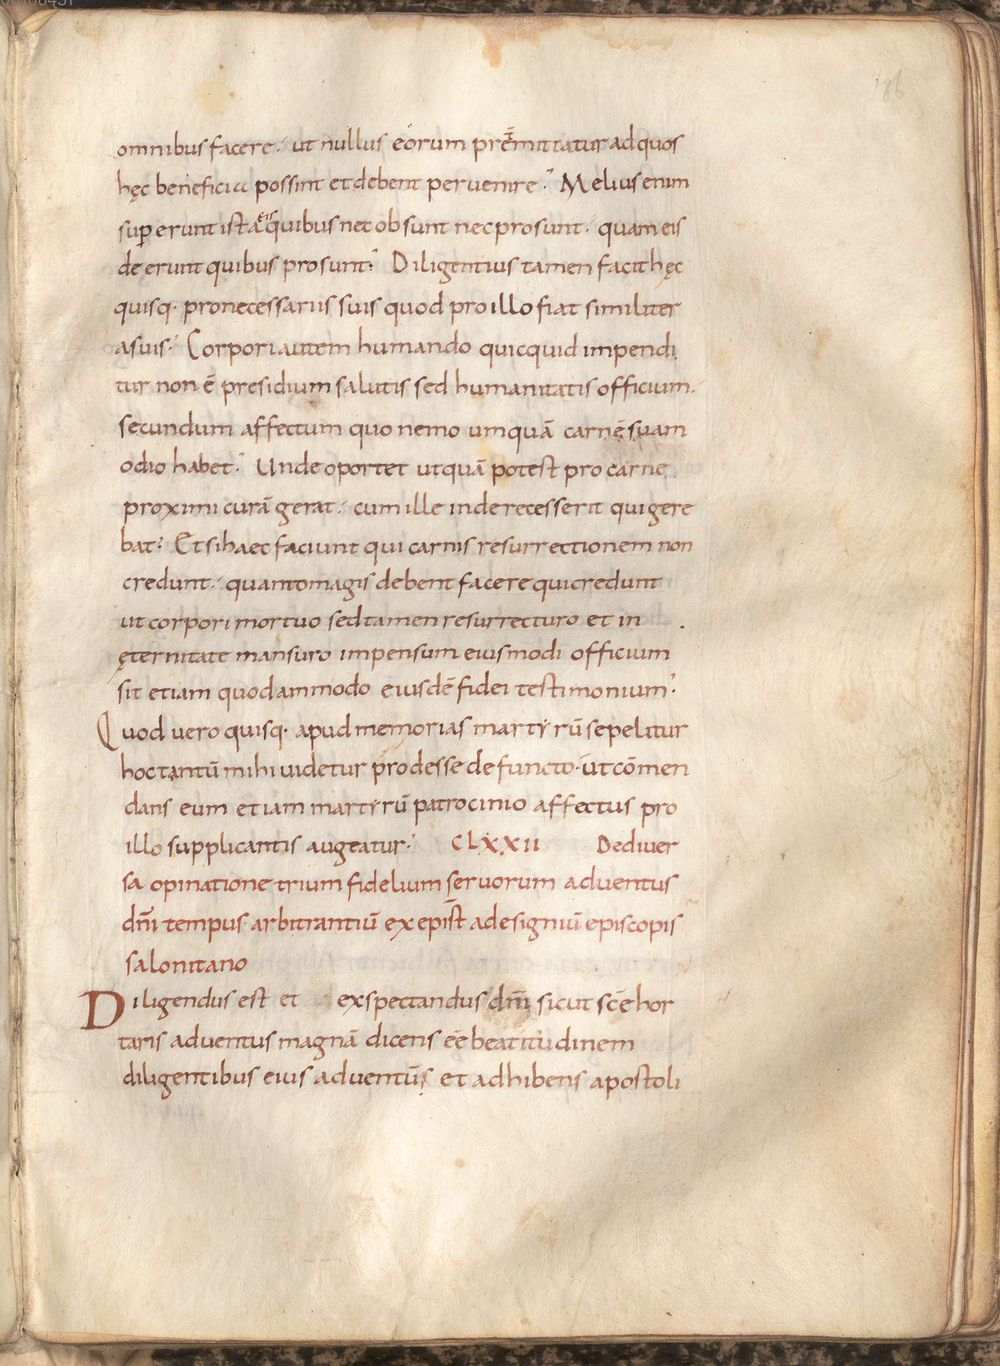 186
omnibus facere. ut nullus eorum pretermittatur ad quos
hęc beneficia possint et debent pervenire. Melius enim
supererunt ista eis quibus nec obsunt nec prosunt. quam eis
deerunt quibus prosunt. Diligentius tamen facit hęc
quisq· pro necessariis suis quod pro illo fiat similiter
a suis. Corpori autem humando quicquid impendi
tur non ē presidium salutis sed humanitatis officium.
secundum affectum quo nemo umquā carnē suam
odio habet. Unde oportet ut quā potest pro carne
proximi curā gerat. cum ille inde recesserit qui gere
bat. Et si haec faciunt qui carnis resurrectionem non
credunt. quanto magis debent facere qui credunt
ut corpori mortuo sed tamen resurrecturo et in
ęternitate mansuro impensum eiusmodi officium
sit etiam quodammodo eiusdē fidei testimonium.
Quod vero quisq· apud memorias martyrū sepelitur
hoc tantū mihi videtur prodesse defuncto. ut cōmen
dans eum etiam martyrū patrocinio affectus pro
illo supplicantis augeatur. CLXXII De diver
sa opinatione trium fidelium servorum adventus
dn̄i tempus arbitrantiū ex epist̄ ad esigniū episcopis
salonitano
Diligendus est et exspectandus dn̄i sicut sc̄e hor
taris adventus magnā dicens eē beatitudinem
diligentibus eius adventūs et adhibens apostoli